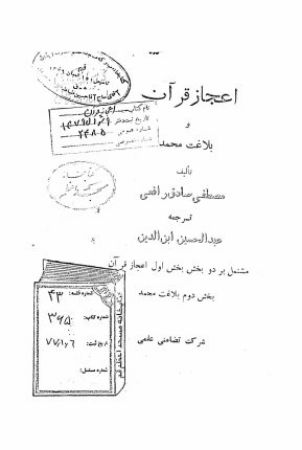 اعجاز قرآن
و
بلاغت محمد
تألیف
مصطفی صادق رافعی
ترجمه
عبدالحسین ابن الدین
مشتمل بر دو بخش بخش اول اعجاز قرآن
بخش دوم بلاغت محمد
شرکت تضامنی علمی
نام کتاب
شماره عمومی ۲۴۸۵
شماره خصوصی
کتابخانه مسجد اعظم قم
شماره قفسه: ۴۳
شماره کتاب: ۳۶۵
تاریخ ثبت: ۷۷/۱/۶
شماره مسلسل: